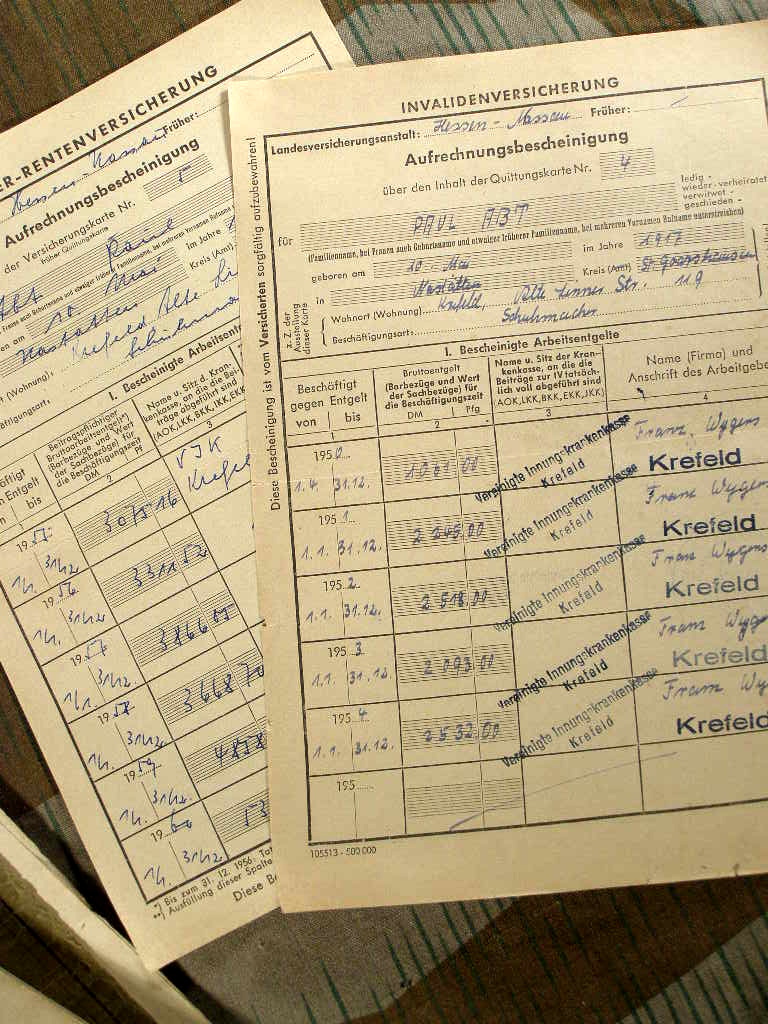 INVALIDENVERSICHERUNG
Landesversicherungsanstalt: Hessen-Nassau Früher:
Aufrechnungsbescheinigung
über den Inhalt der Quittungskarte Nr. 4
ledig -
wieder-verheiratet
verwitwet -
geschieden -
für PAUL ABT
(Familienname, bei Frauen auch Geburtsname und etwaiger früherer Familienname, bei mehreren Vornamen Rufname unterstreichen)
geboren am 10. Mai im Jahre 1917
in Nastätten Kreis (Amt) St. Goarshausen
z. Z. der
Ausstellung
dieser Karte
Wohnort (Wohnung) Krefeld, Alte Linner Str. 119
Beschäftigungsort: Schuhmacher
Diese Bescheinigung ist vom Versicherten sorgfältig aufzubewahren!
I. Bescheinigte Arbeitsentgelte
Beschäftigt
gegen Entgelt
von bis
1
Bruttoentgelt
(Barbezüge und Wert
der Sachbezüge) für
die Beschäftigungszeit
DM Pfg
2
Name u. Sitz der Kran-
kenkasse, an die die
Beiträge zur IV tatsäch-
lich voll abgeführt sind
(AOK,LKK,BKK,EKK,JKK)
3
Name (Firma) und
Anschrift des Arbeitgebe
4
1950
1.4. 31.12. 1061 00 Vereinigte Innungskrankenkasse
Krefeld
Franz Wygens
Krefeld
1951
1.1. 31.12. 2 245.00 Vereinigte Innungskrankenkasse
Krefeld
Franz Wygens
Krefeld
1952
1.1. 31.12. 2 518 00 Vereinigte Innungskrankenkasse
Krefeld
Franz Wygens
Krefeld
1953
1.1. 31.12. 2 093 00 Vereinigte Innungskrankenkasse
Krefeld
Franz Wyge
Krefeld
1954
1.1. 31.12. 2 532 00 Vereinigte Innungskrankenkasse
Krefeld
Franz Wy
Krefeld
195
105513 - 500 000
ER-RENTENVERSICHERUNG
Hessen-Nassau Früher:
Aufrechnungsbescheinigung
der Versicherungskarte Nr. 5
früher Quittungskarte
Abt Paul
10. Mai im Jahre 1
Nastätten Kreis (Amt)
(Wohnung): Krefeld Alte Li
I. Bescheinigte Arbeitsent
Beitragspflichtiger
Bruttoarbeitsentgelt*)
(Barbezüge und Wert
der Sachbezüge) für
die Beschäftigungszeit
DM Pf
2
Name u. Sitz d. Kran-
kenkasse, an die die Bei-
träge abgeführt sind
(AOK,LKK,BKK,IKK,EKK
3
VJK
Krefel
1955
1/1. 31/12 3075 16
1956
1/1. 31/12 3311 52
1957
1/1. 31/12. 3866 05
1958
1/1. 31/12 3668 70
1959
1/1. 31/12. 4858
1960
1/1. 31/12 53
*) Bis zum 31. 12. 1956:
**) Ausfüllung dieser Spalte